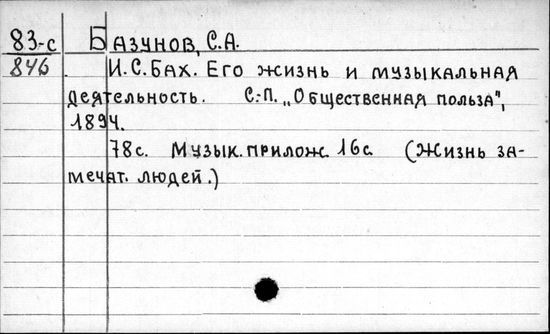 83-с Базунов, С.А.
846 И.С.Бах. Его жизнь и музыкальная
деятельность. С.-П. „Общественная польза",
1894.
78с. Музык. прилож. 16с. (Жизнь за-
мечат. людей.)